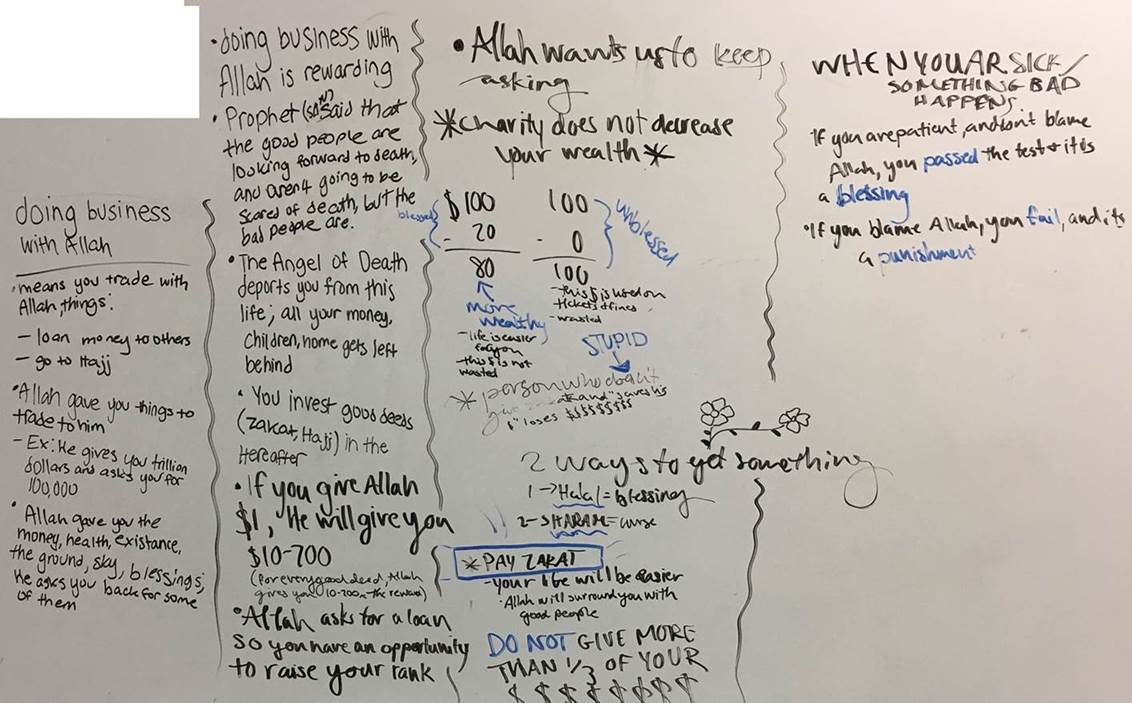 doing business
with Allah
· means you trade with
Allah, things:
- loan money to others
- go to Hajj
• Allah gave you things to
trade to him
- Ex: He gives you trillion
dollars and asks you for
100,000
• Allah gave you the
money, health, existance,
the ground, sky, blessings;
He asks you back for some
of them
• doing business with
Allah is rewarding
• Prophet (saw) said that
the good people are
looking forward to death,
and aren't going to be
scared of death, but the
bad people are.
• The Angel of Death
deports you from this
life; all your money,
children, home gets left
behind
• You invest good deeds
(zakat, Hajj) in the
Hereafter
• If you give Allah
$1, He will give you
$10-700
(for every good deed, Allah
gives you 10-700 the reward)
• Allah asks for a loan
so you have an opportunity
to raise your rank
• Allah wants us to keep
asking
*charity does not decrease
your wealth*
blessed
$100
- 20
80
more
wealthy
- life is easier
for you
- this $ is not
wasted
100
- 0
100
unblessed
- this $ is used on
tickets & fines
- wasted
STUPID
* person who doesn't
give and "saves his
$" loses $$$$$$$$$
2 ways to get something
1 → Halal = blessing
2 - SHARAM = curse
* PAY ZAKAT
- your life will be easier
· Allah will surround you with
good people
DO NOT GIVE MORE
THAN 1/3 OF YOUR
$ $ $ $ $ $ $ $
WHEN YOU AR SICK /
SOMETHING BAD
HAPPENS:
If you are patient, and don't blame
Allah, you passed the test & it is
a blessing
• If you blame Allah, you fail, and its
a punishment